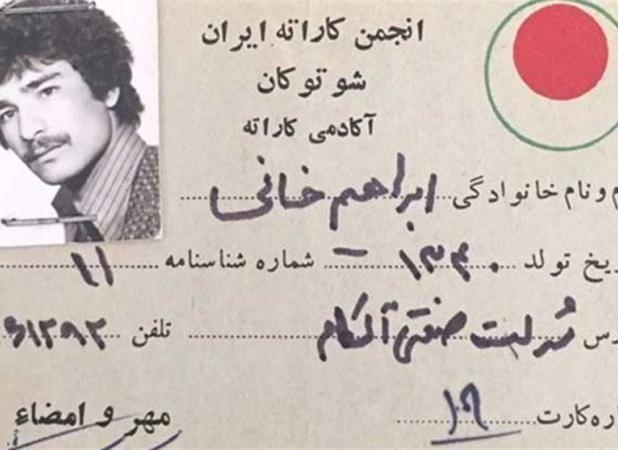 انجمن کاراته ایران
شوتوکان
آکادمی کاراته
م و نام خانوادگی ابراهیم خانی
ریخ تولد ۱۳۴۰ شماره شناسنامه ۱۱
رس شرکت صنعتی تلفن
اره کارت ۱۹ مهر و امضاء